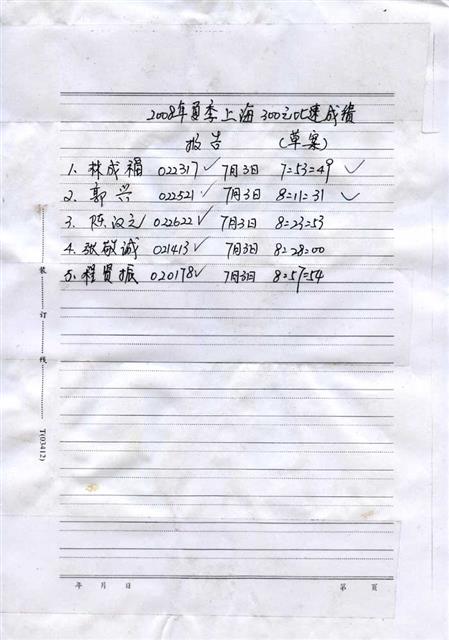 2008年夏季上海300元比速成绩
报告 (草案)
1、林成福 022317✓ 7月3日 7=53=49 ✓
2、郭兴 022521✓ 7月3日 8=11=31 ✓
3、陈汉元 022622✓ 7月3日 8=23=53
4、张敬诚 021413✓ 7月3日 8=28=00
5、程贤振 020178✓ 7月3日 8=57=54
装
订
线
T(03412)
年 月 日 第 页